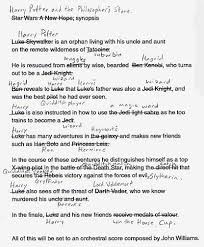 Harry Potter and the Philosopher's Stone.
Star Wars: A New Hope: synopsis
Harry Potter
Luke Skywalker is an orphan living with his uncle and aunt
on the remote wilderness of Tatooine.
muggles suburbia
Hagrid
He is rescued from aliens by wise, bearded Ben Kenobi, who turns
out to be a Jedi Knight.
wizard
Hagrid Harry wizard
Ben reveals to Luke that Luke's father was also a Jedi Knight, and
was the best pilot he had ever seen.
Quidditch player a magic wand
Luke is also instructed in how to use the Jedi light sabre as he too
trains to become a Jedi.
wizard
Harry Hogwarts
Luke has many adventures in the galaxy and makes new friends
such as Han Solo and Princess Leia.
Ron Hermione
In the course of these adventures he distinguishes himself as a top
X-wing pilot in the battle of the Death Star, making the direct hit
Quidditch
secures the Rebels victory against the forces of evil.
Gryffindor Slytherin.
Harry Lord Voldemort
Luke also sees off the threat of Darth Vader, who we know
murdered his uncle and aunt.
In the finale, Luke and his new friends receive medals of valour.
Harry win the House Cup.
All of this will be set to an orchestral score composed by John Williams.